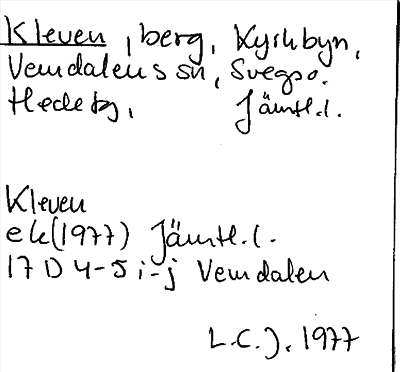 Kleven, berg, Kyrkbyn,
Vemdalens sn, Svegs o.
Hede tg, Jämtl. l.
Kleven
ek (1977) Jämtl. l.
17 D 4-5 i-j Vemdalen
L.C.J. 1977